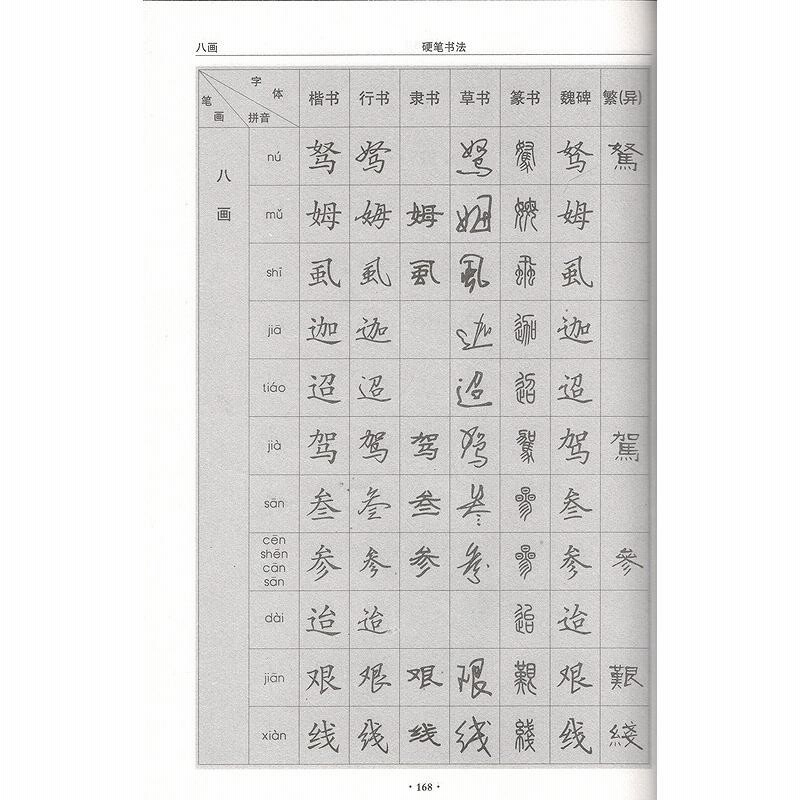 八画 硬笔书法
字体 笔画 拼音 楷书 行书 隶书 草书 篆书 魏碑 繁(异)
八画
nú 驽 驽 驽 驽 驽 駑
mǔ 姆 姆 姆 姆 姆 姆
shī 虱 虱 虱 虱 虱 虱
jiā 迦 迦 迦 迦 迦
tiáo 迢 迢 迢 迢 迢
jià 驾 驾 驾 驾 驾 驾 駕
sān 叁 叁 叁 叁 叁 叁
cēn shēn cān sān 参 参 参 参 参 参 參
dài 迨 迨 迨 迨
jiān 艰 艰 艰 艰 艱 艰 艱
xiàn 线 线 线 线 綫 线 綫
· 168 ·